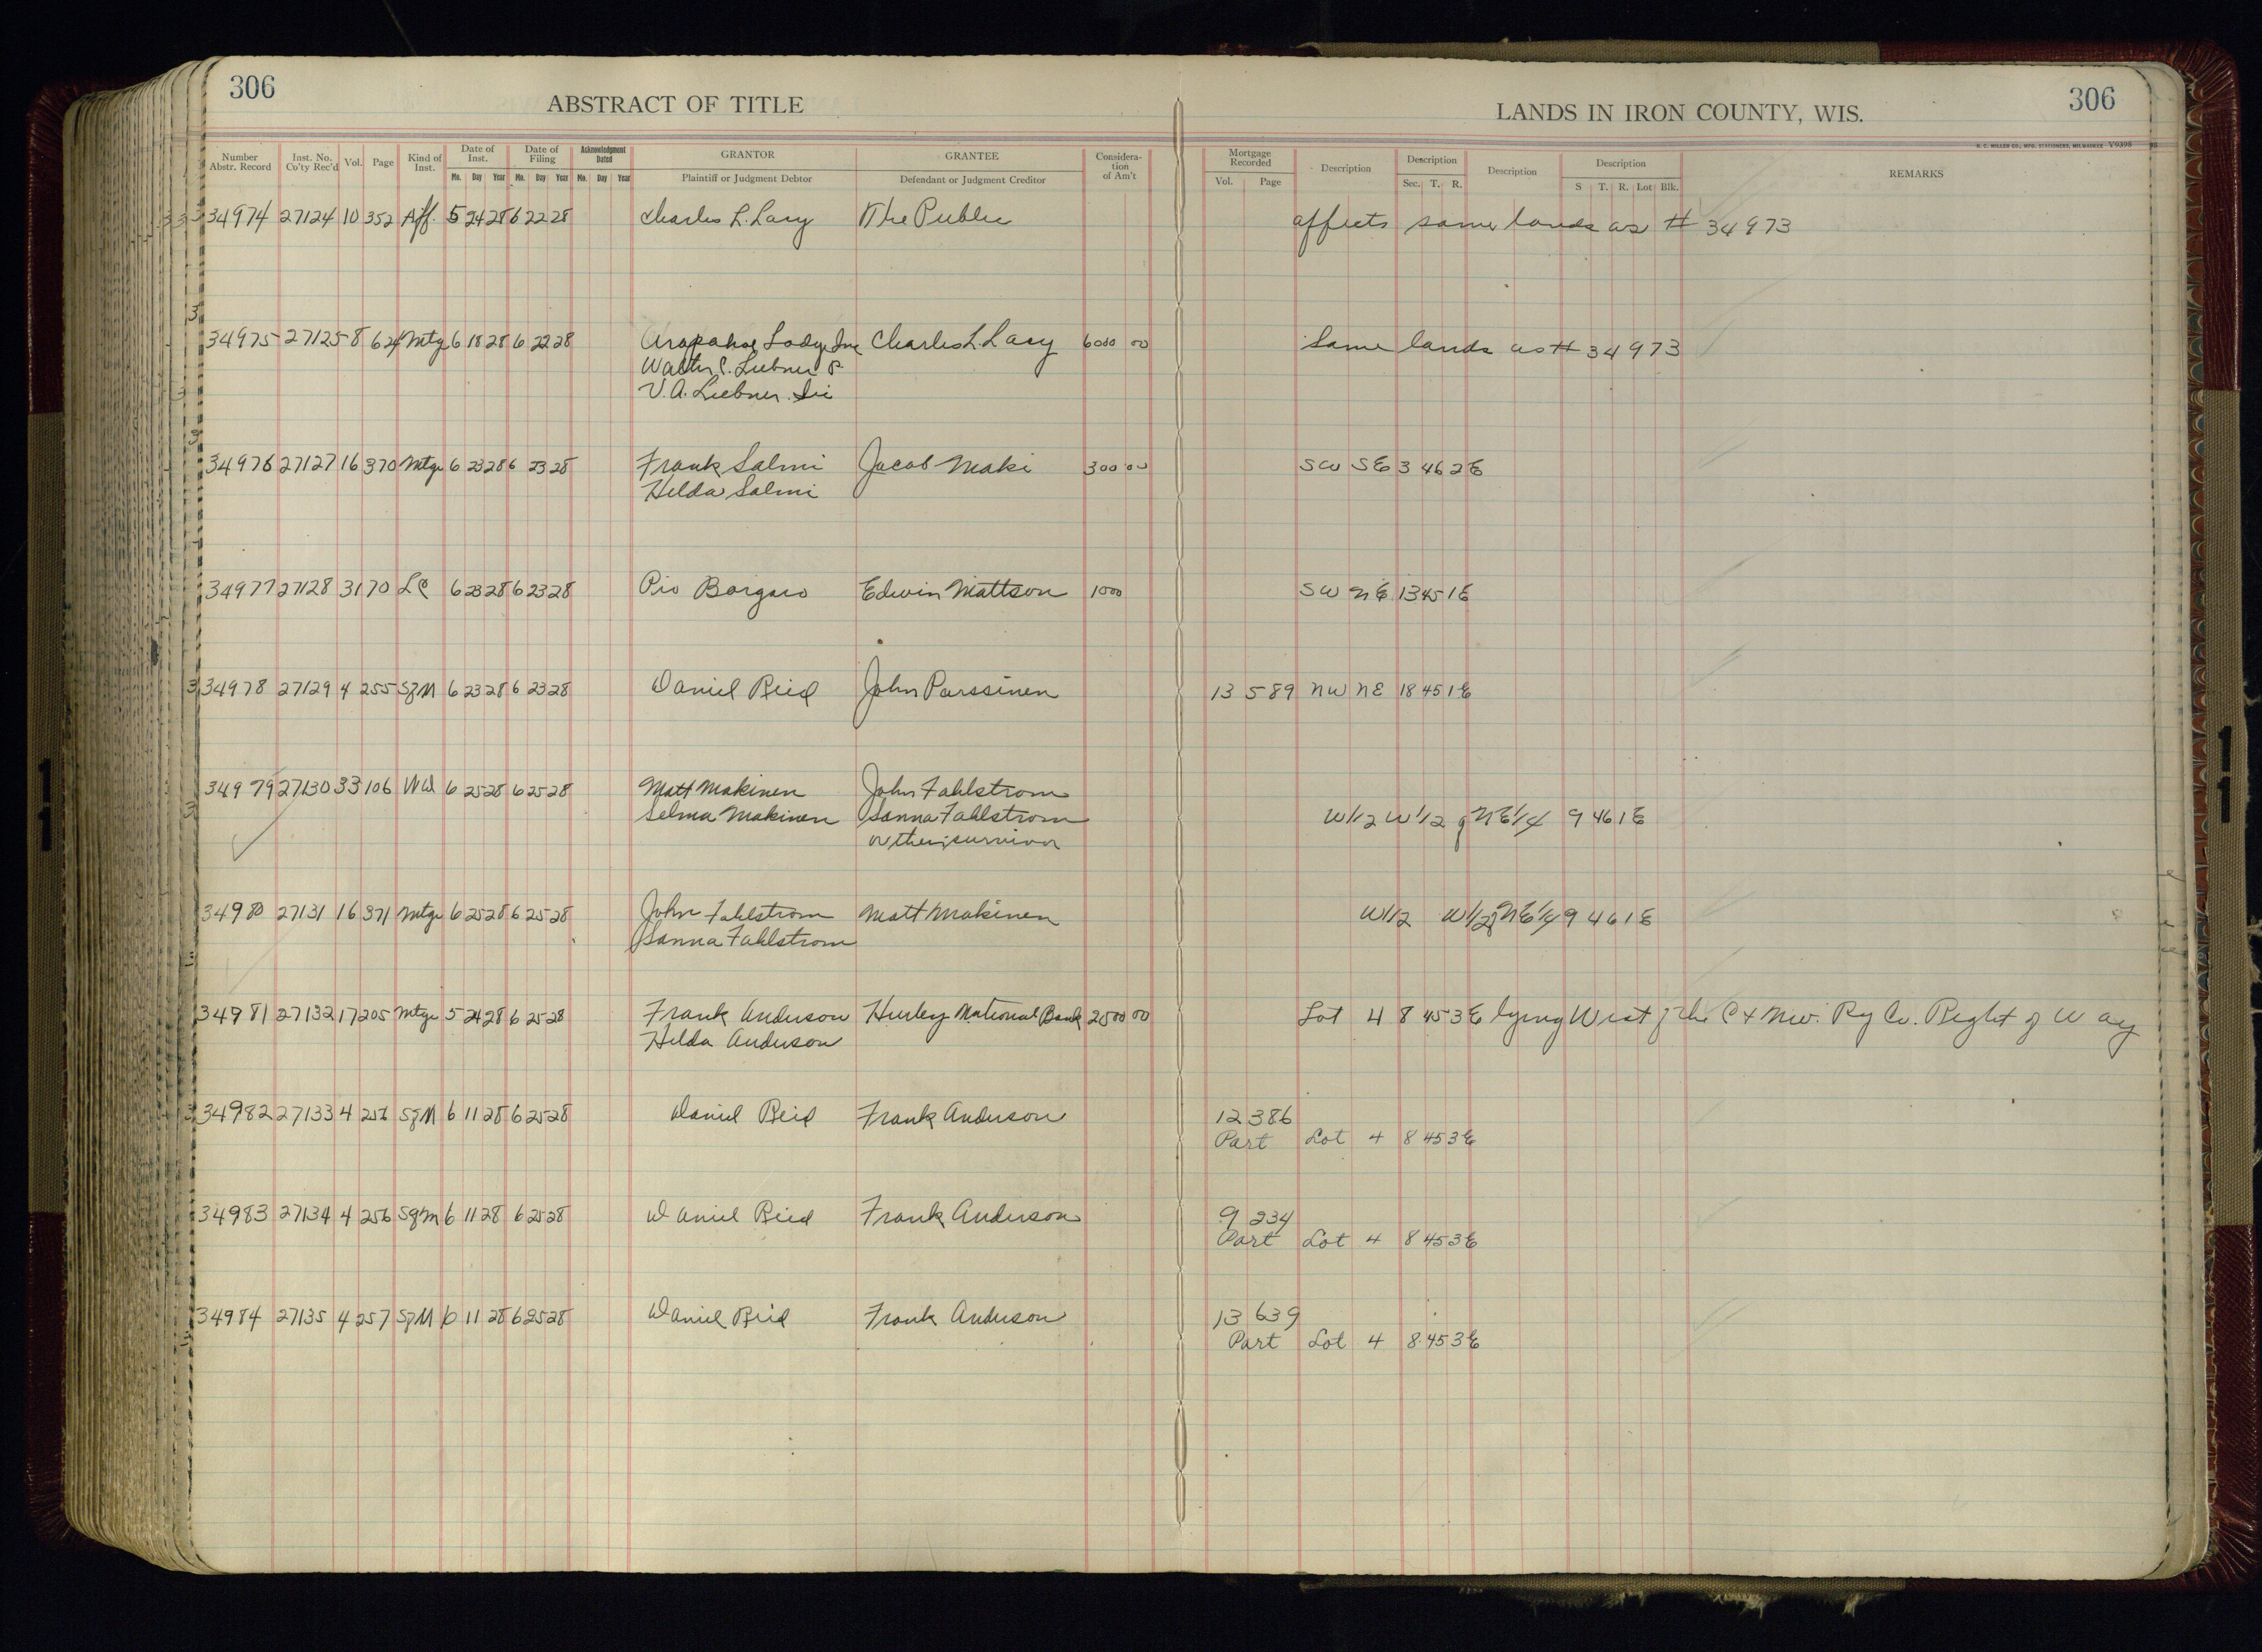 306
ABSTRACT OF TITLE
LANDS IN IRON COUNTY, WIS.
306
H. C. MILLER CO., MFG. STATIONERS, MILWAUKEE V9398
Number Abstr. Record Inst. No. Co'ty Rec'd Vol. Page Kind of Inst. Date of Inst. Mo. Day Year Date of Filing Mo. Day Year Acknowledgment Dated Mo. Day Year GRANTOR Plaintiff or Judgment Debtor GRANTEE Defendant or Judgment Creditor Consideration of Am't Mortgage Recorded Vol. Page Description Description Sec. T. R. Description Description S T. R. Lot Blk. REMARKS
34974 27124 10 352 Aff. 5 24 28 6 22 28 Charles L. Lacy The Public affects same lands as # 34973
34975 27125 8 624 Mtg 6 18 28 6 22 28 Arapahoe Lodge Inc Charles L. Lacy 6000 00 Same lands as # 34973
Walter C. Luebner P.
V. A. Luebner
34976 27127 16 370 Mtge 6 23 28 6 23 28 Frank Salmi Jacob Maki 300 00 SW SE 3 46 2E
Hilda Salmi
34977 27128 31 70 LC 6 23 28 6 23 28 Pio Edwin Mattson 1000 SW NE 13 45 1E
34978 27129 4 255 SgM 6 23 28 6 23 28 Daniel Reid John Parssinen 13 589 NW NE 18 45 1E
34979 27130 33 106 WD 6 25 28 6 25 28 Matt Makinen John Fahlstrom
Selma Makinen Sanna Fahlstrom W1/2 W1/2 of NE1/4 9 46 1E
or their survivor
34980 27131 16 371 Mtge 6 25 28 6 25 28 John Fahlstrom Matt Makinen W1/2 W1/2 of NE1/4 9 46 1E
Sanna Fahlstrom
34981 27132 17 205 Mtge 5 24 28 6 25 28 Frank Anderson Hurley National Bank 2500 00 Lot 4 8 45 3E lying West of the C & NW. Ry Co. Right of Way
Hilda Anderson
34982 27133 4 256 SgM 6 11 28 6 25 28 Daniel Reid Frank Anderson 12 386
Part Lot 4 8 45 3E
34983 27134 4 256 SgM 6 11 28 6 25 28 Daniel Reid Frank Anderson 9 234
Part Lot 4 8 45 3E
34984 27135 4 257 SgM 6 11 28 6 25 28 Daniel Reid Frank Anderson 13 639
Part Lot 4 8 45 3E